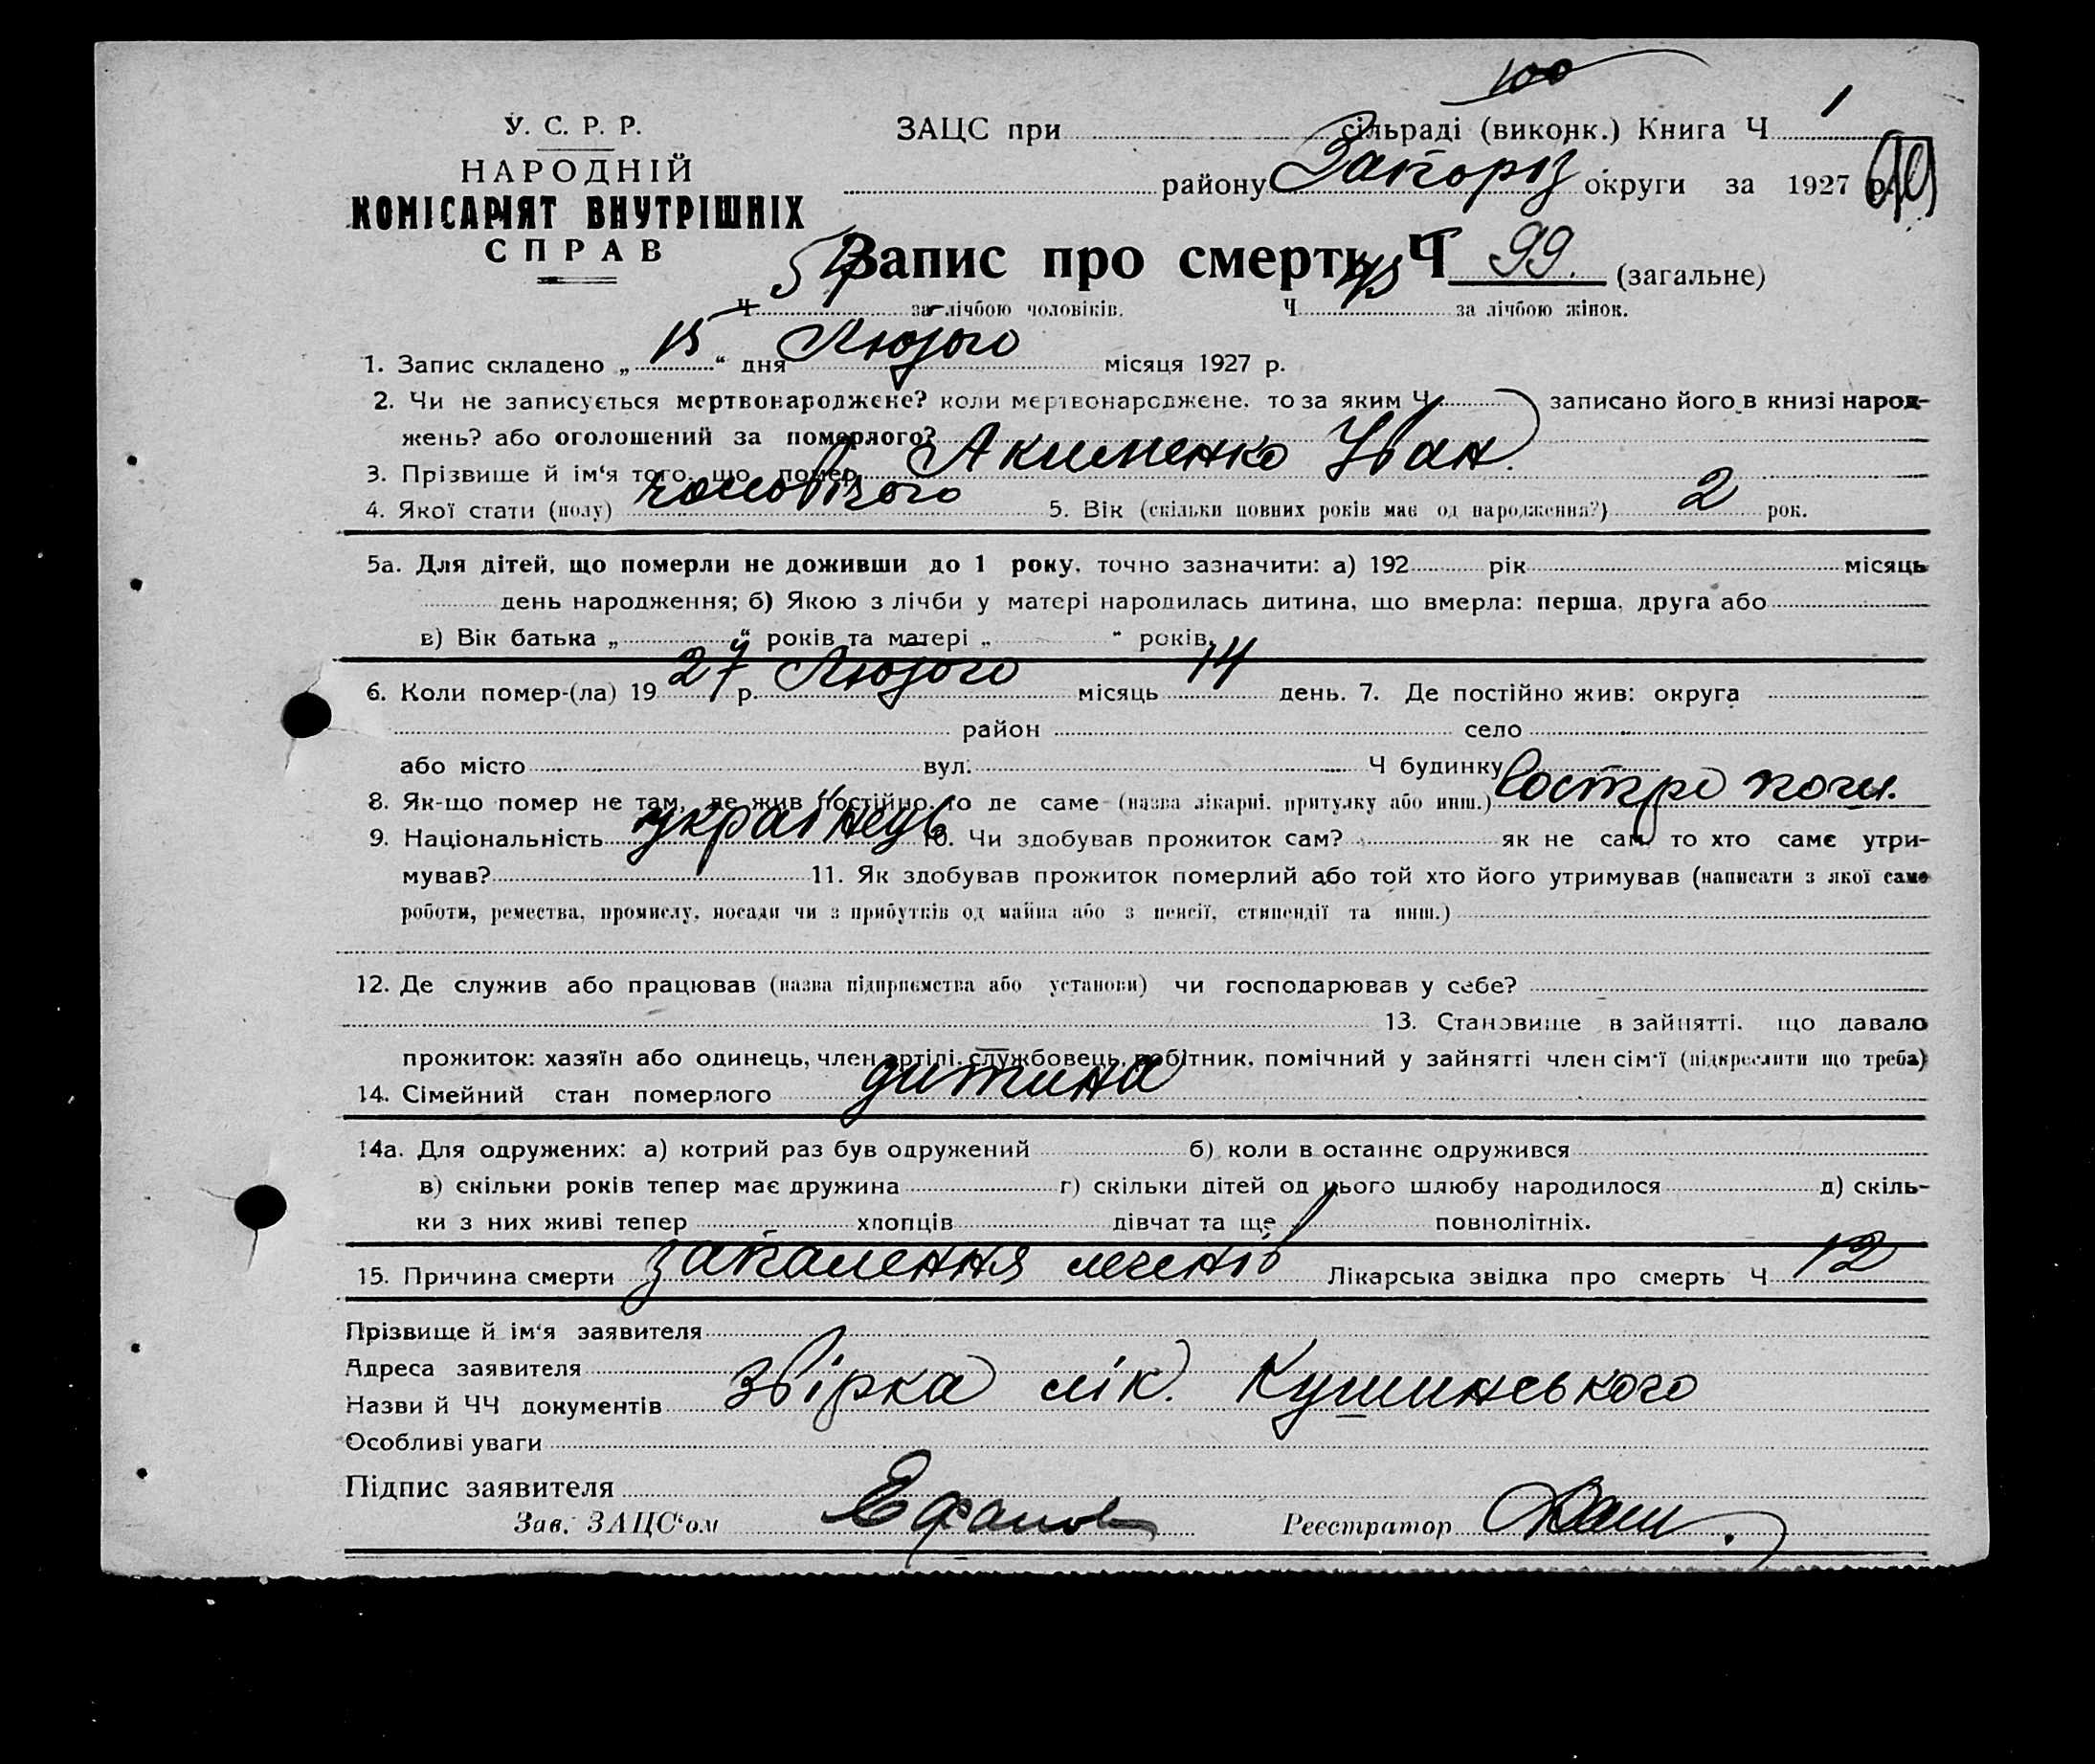 100
У. С. Р. Р.
НАРОДНІЙ
КОМІСАРІЯТ ВНУТРІШНІХ
СПРАВ
ЗАЦС при сільраді (виконк.) Книга Ч 1
району Запоріз округи за 1927 р.
Запис про смерть Ч 99. (загальне)
Ч 54 за лічбою чоловіків. Ч 45 за лічбою жінок.
1. Запис складено „ 15 “ дня Лютого місяця 1927 р.
2. Чи не записується мертвонароджене? коли мертвонароджене, то за яким Ч записано його в книзі народ-
жень? або оголошений за померлого?
3. Прізвище й ім‘я того, що помер Акименко Іван.
4. Якої стати (полу) чоловічого 5. Вік (скільки повних років має од народження?) 2 рок.
5а. Для дітей, що померли не доживши до 1 року, точно зазначити: а) 192 рік місяць
день народження; б) Якою з лічби у матері народилась дитина, що вмерла: перша, друга або
в) Вік батька „ “ років та матері „ “ років.
6. Коли помер-(ла) 19 27 р. Лютого місяць 14 день. 7. Де постійно жив: округа
район село
або місто вул. Ч будинку
8. Як-що помер не там, де жив постійно, то де саме (назва лікарні, притулку або инш.)
9. Національність українець 10. Чи здобував прожиток сам? як не сам, то хто саме утри-
мував? 11. Як здобував прожиток померлий або той хто його утримував (написати з якої саме
роботи, ремества, промислу, посади чи з прибутків од майна або з пенсії, стипендії та инш.)
12. Де служив або працював (назва підприємства або установи) чи господарював у себе?
13. Становище в зайнятті, що давало
прожиток: хазяїн або одинець, член артілі, службовець, робітник, помічний у зайнятті член сім‘ї (підкреслити що треба)
14. Сімейний стан померлого дитина
14а. Для одружених: а) котрий раз був одружений б) коли в останнє одружився
в) скільки років тепер має дружина г) скільки дітей од цього шлюбу народилося д) скіль-
ки з них живі тепер хлопців дівчат та ще повнолітніх.
15. Причина смерти запалення легенів Лікарська звідка про смерть Ч 12
Прізвище й ім‘я заявителя
Адреса заявителя
Назви й ЧЧ документів Звірка лік. Кушинського
Особливі уваги
Підпис заявителя
Зав. ЗАЦС‘ом Реєстратор